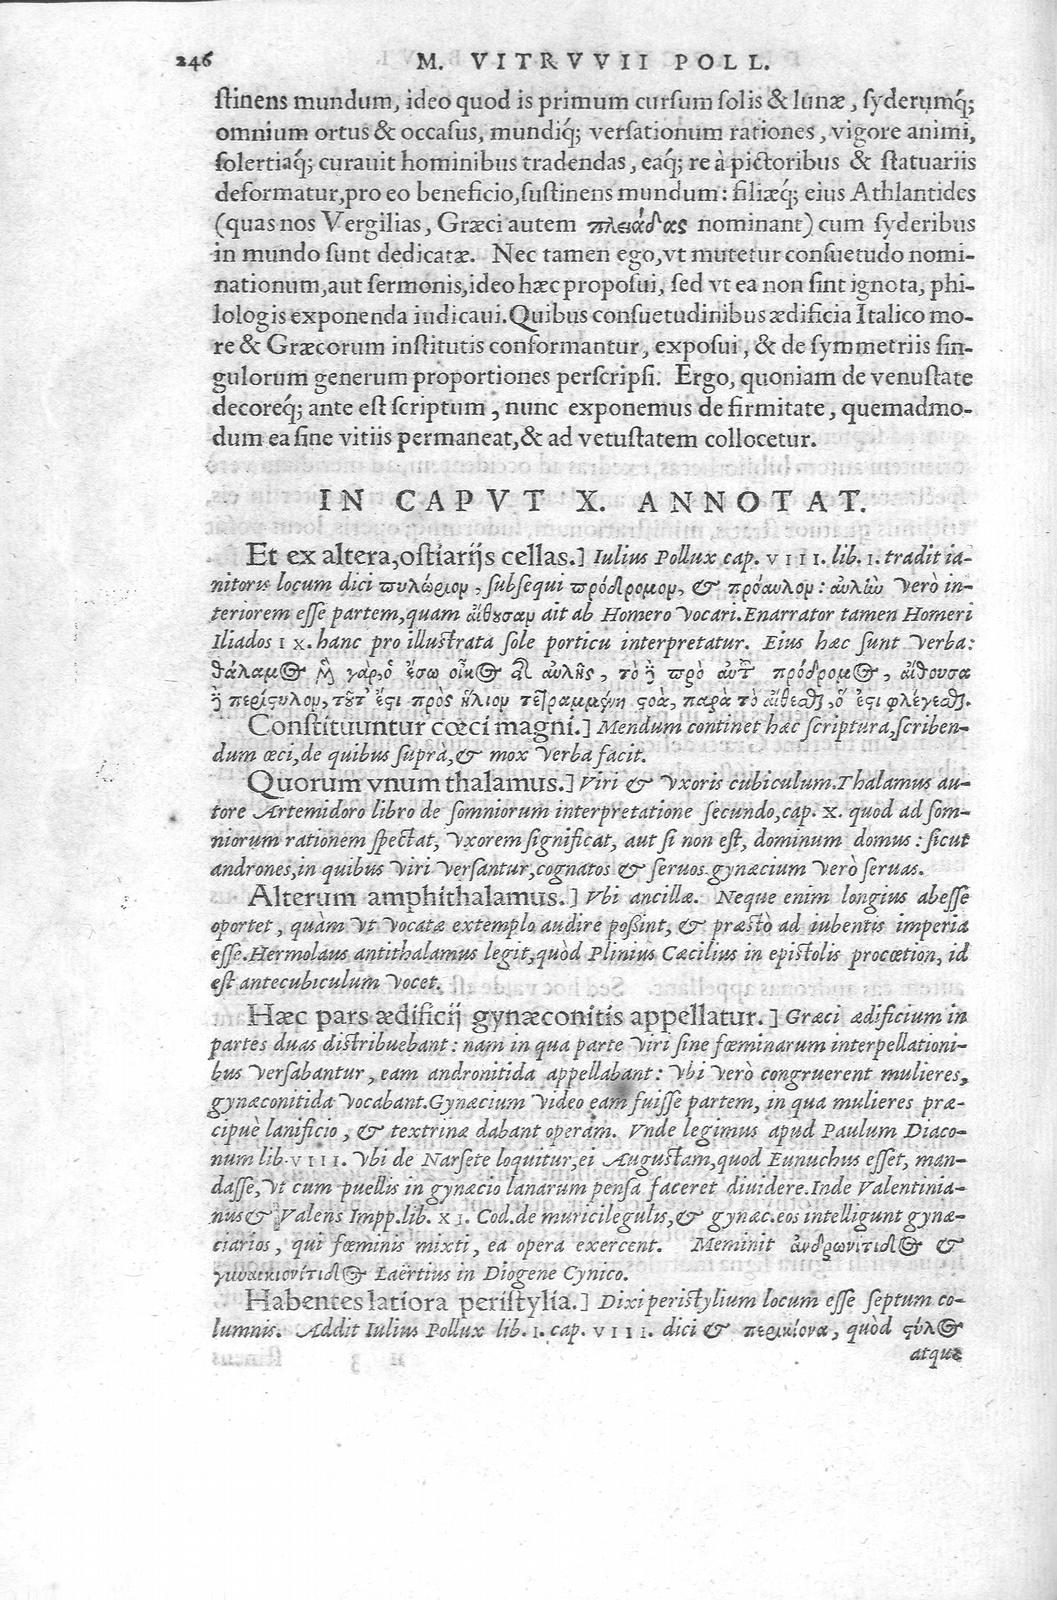 246 M. VITRVVII POLL.
stinens mundum, ideo quod is primum cursum solis & lunæ, syderumq́;
omnium ortus & occasus, mundiq́; versationum rationes, vigore animi,
solertiaq́; curauit hominibus tradendas, eaq́; re à pictoribus & statuariis
deformatur, pro eo beneficio, sustinens mundum: filiæq́; eius Athlantides
(quas nos Vergilias, Græci autem πλειάδας nominant) cum syderibus
in mundo sunt dedicatæ. Nec tamen ego, vt mutetur consuetudo nomi-
nationum, aut sermonis, ideo hæc proposui, sed vt ea non sint ignota, phi-
lologis exponenda iudicaui. Quibus consuetudinibus ædificia Italico mo-
re & Græcorum institutis conformantur, exposui, & de symmetriis sin-
gulorum generum proportiones perscripsi. Ergo, quoniam de venustate
decoreq́; ante est scriptum, nunc exponemus de firmitate, quemadmo-
dum ea sine vitiis permaneat, & ad vetustatem collocetur.
IN CAPVT X. ANNOTAT.
Et ex altera, ostiarijs cellas.] Iulius Pollux cap. VIII. lib. I. tradit ia-
nitoris locum dici πυλώριον, subsequi πρόδρομον, & πρόαυλον: αυλὼ verò in-
teriorem esse partem, quam αἴθουσαν ait ab Homero vocari. Enarrator tamen Homeri
Iliados IX. hanc pro illustrata sole porticu interpretatur. Eius hæc sunt verba:
θάλαμος γὰρ, ὁ ἔσω οἶκος αὐλῆς, τὸ πρὸ πρόδρομος, αἴθουσα
ἡ περίςυλον, τοῦτ᾽ ἔςι πρὸς ἥλιον ςοὰ, παρὰ τὸ ὅ ἐςι
Constituuntur cœci magni.] Mendum continet hæc scriptura, scriben-
dum œci, de quibus suprà, & mox verba facit.
Quorum vnum thalamus.] Viri & vxoris cubiculum. Thalamus au-
tore Artemidoro libro de somniorum interpretatione secundo, cap. X. quod ad som-
niorum rationem spectat, vxorem significat, aut si non est, dominum domus: sicut
andrones, in quibus viri versantur, cognatos & seruos. gynæcium verò seruas.
Alterum amphithalamus.] Vbi ancillæ. Neque enim longius abesse
oportet, quàm vt vocatæ extemplo audire possint, & præstò ad iubentis imperia
esse. Hermolaus antithalamus legit, quòd Plinius Cæcilius in epistolis procœtion, id
est antecubiculum vocet.
Hæc pars ædificij gynæconitis appellatur.] Græci ædificium in
partes duas distribuebant: nam in qua parte viri sine fœminarum interpellationi-
bus versabantur, eam andronitida appellabant: vbi verò congruerent mulieres,
gynæconitida vocabant. Gynæcium video eam fuisse partem, in qua mulieres præ-
cipuè lanificio, & textrinæ dabant operam. Vnde legimus apud Paulum Diaco-
num lib. VIII. vbi de Narsete loquitur, ei Augustam, quod Eunuchus esset, man-
dasse, vt cum puellis in gynæcio lanarum pensa faceret diuidere. Inde Valentinia-
nus & Valens Impp. lib. XI. Cod. de muricilegulis, & gynæc. eos intelligunt gynæ-
ciarios, qui fœminis mixti, ea opera exercent. Meminit ἀνδρωνίτιδος &
γυναικωνίτιδος Laërtius in Diogene Cynico.
Habentes latiora peristylia.] Dixi peristylium locum esse septum co-
lumnis. Addit Iulius Pollux lib. I. cap. VIII. dici & περικίονα, quòd ςύλος
atque